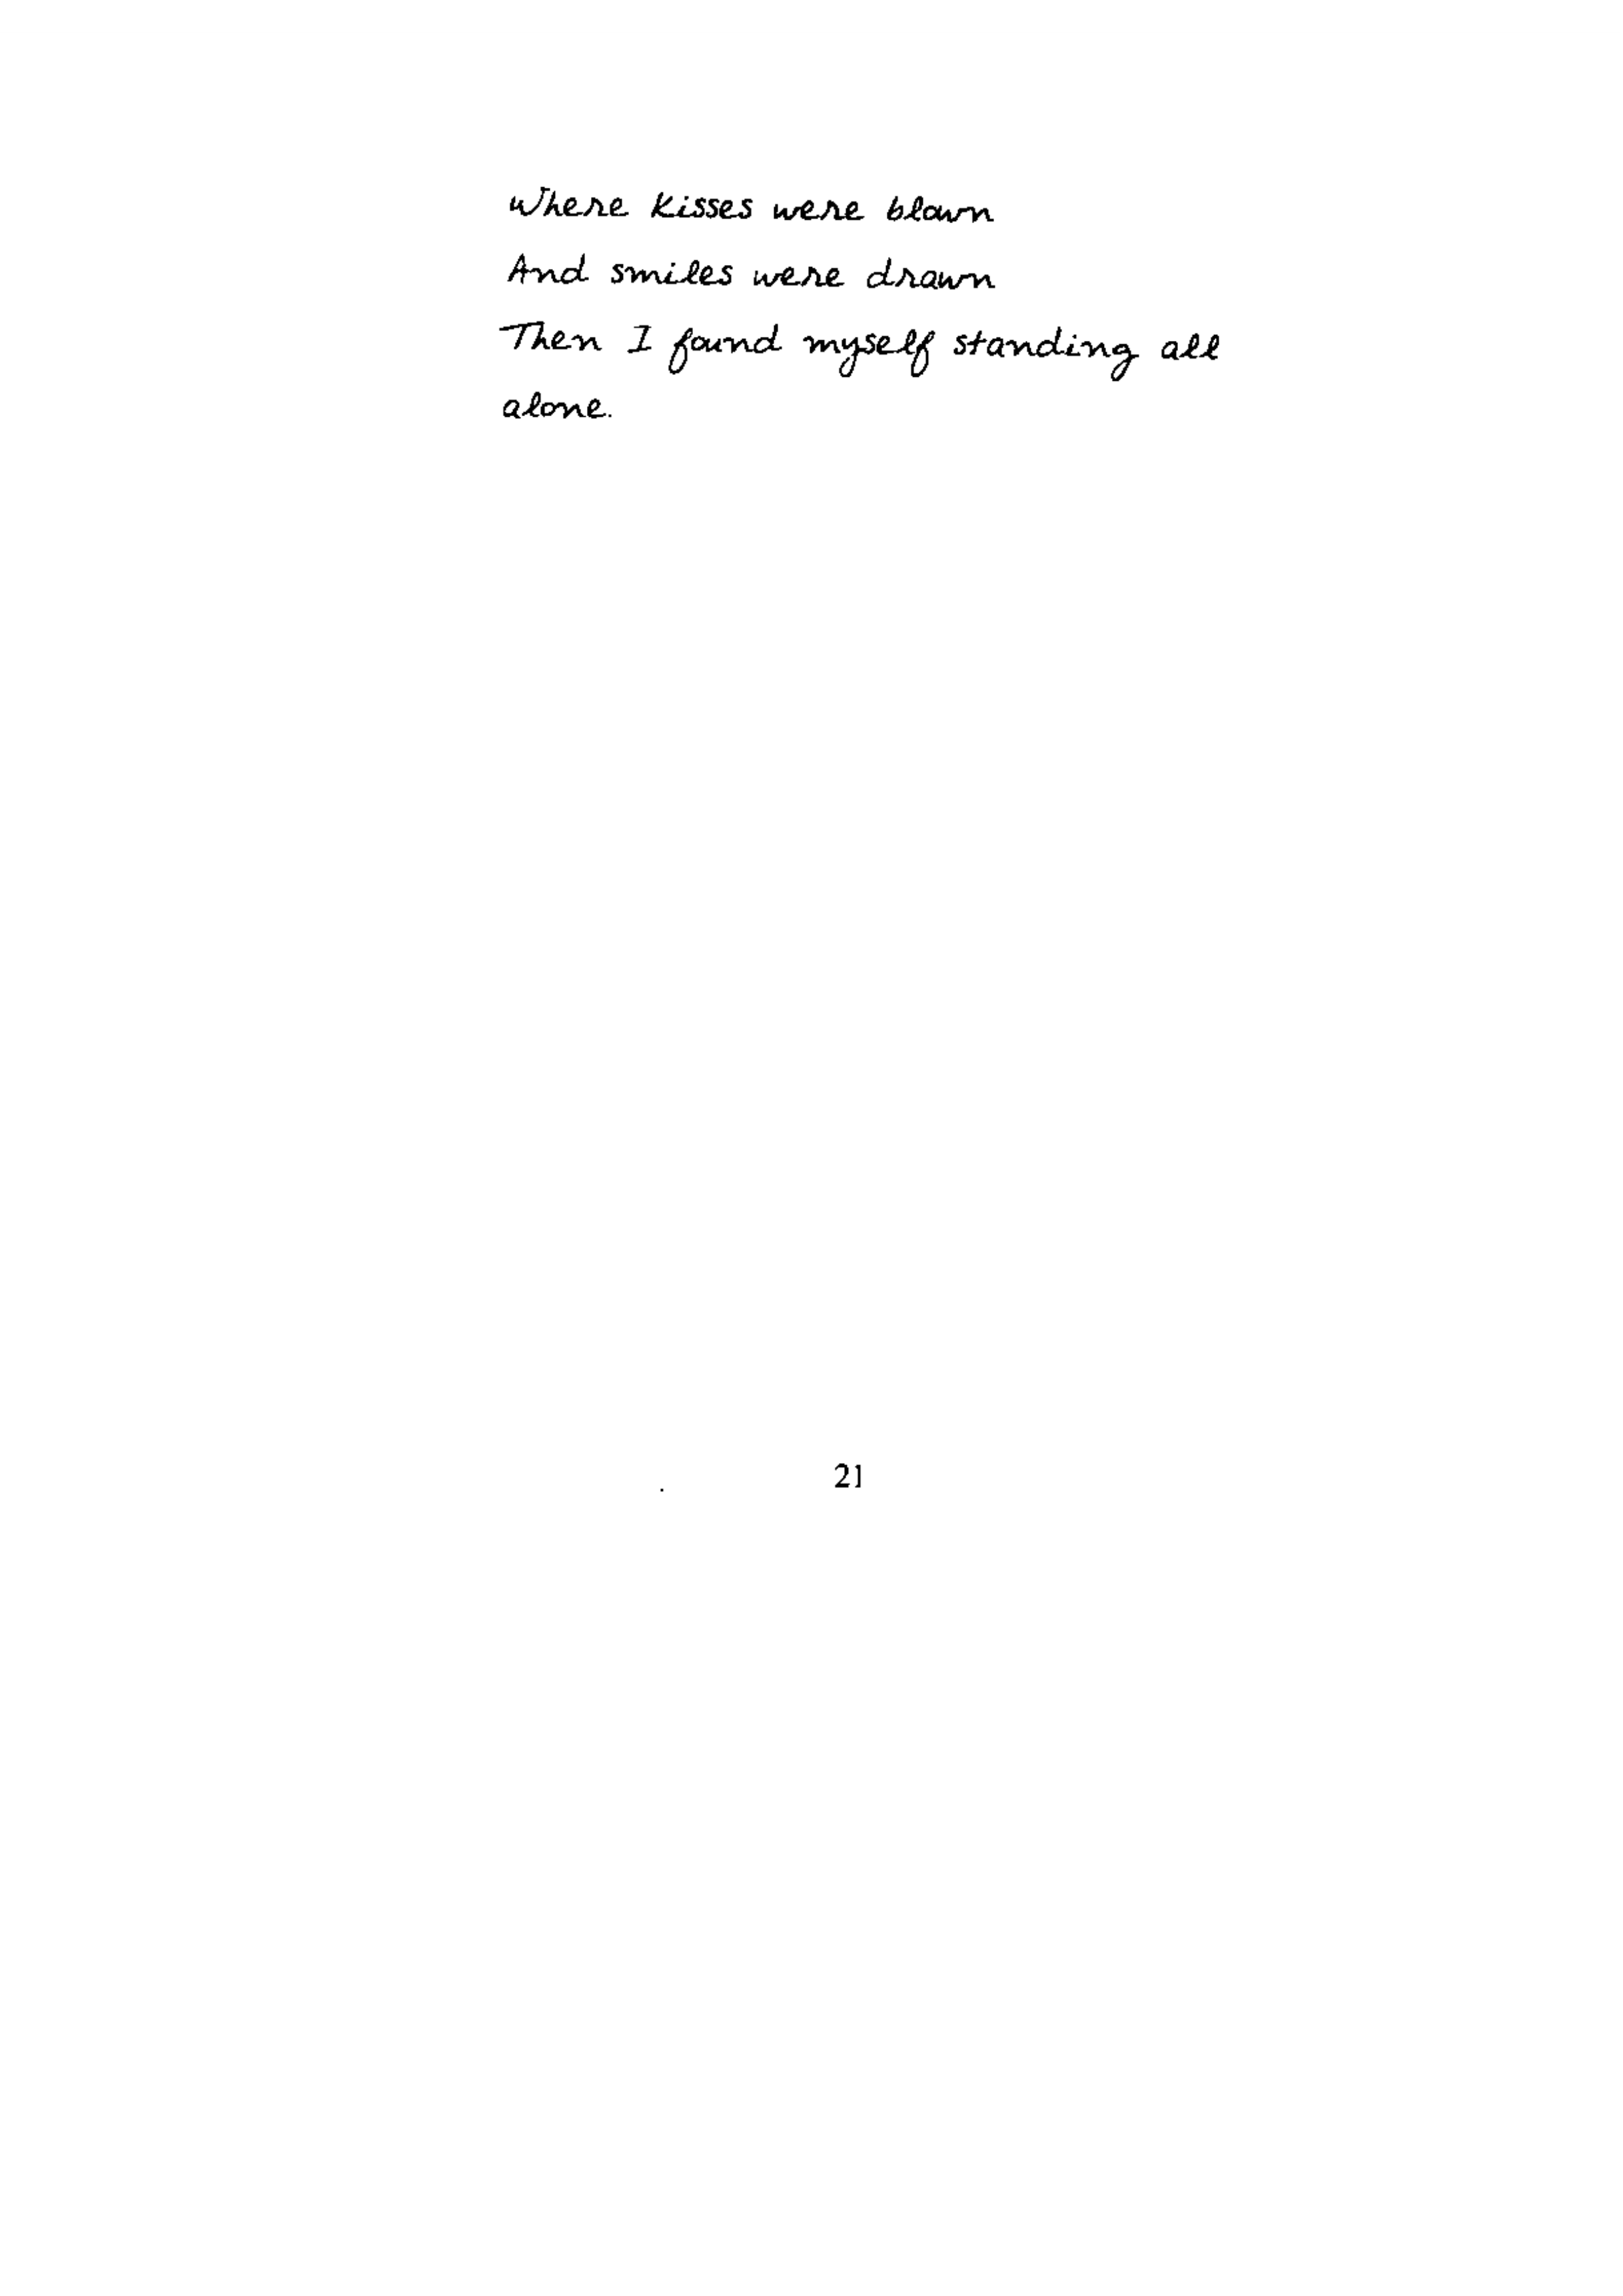 Where kisses were blown
And smiles were drawn
Then I found myself standing all
alone.
21